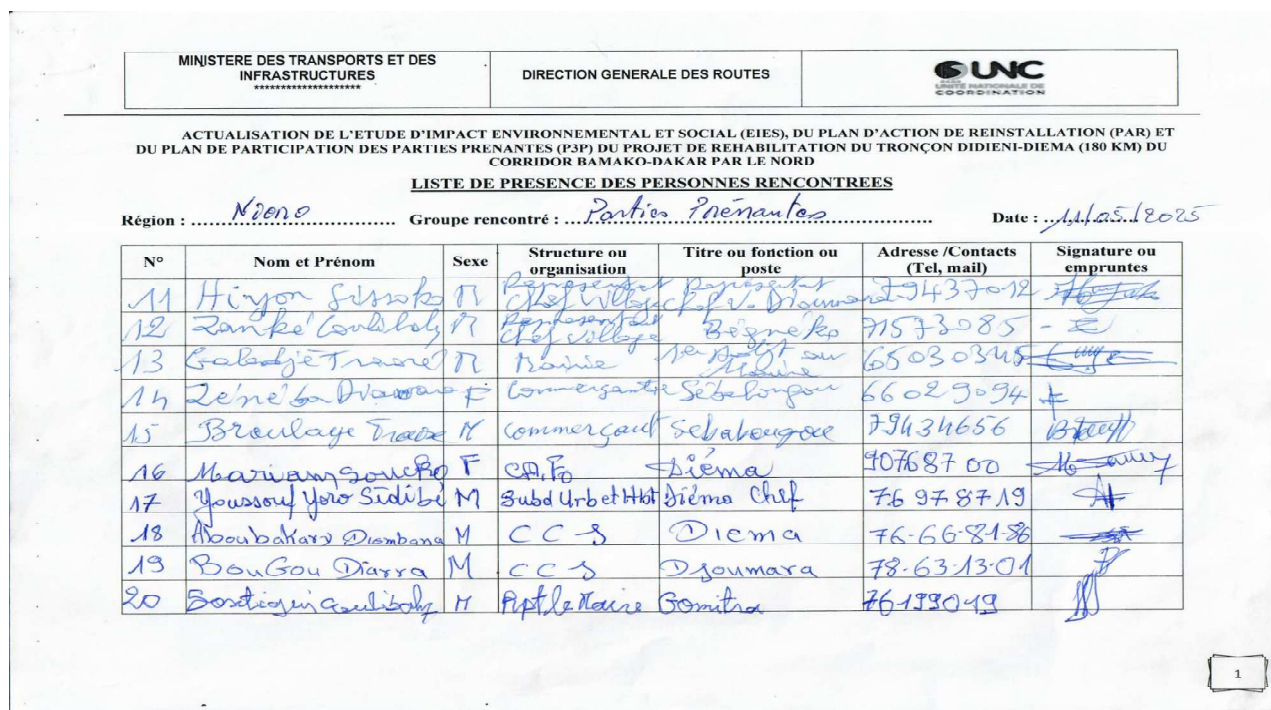 MINISTERE DES TRANSPORTS ET DES
INFRASTRUCTURES
********************
DIRECTION GENERALE DES ROUTES
UNC
UNITE NATIONALE DE
COORDINATION
ACTUALISATION DE L'ETUDE D'IMPACT ENVIRONNEMENTAL ET SOCIAL (EIES), DU PLAN D'ACTION DE REINSTALLATION (PAR) ET
DU PLAN DE PARTICIPATION DES PARTIES PRENANTES (P3P) DU PROJET DE REHABILITATION DU TRONÇON DIDIENI-DIEMA (180 KM) DU
CORRIDOR BAMAKO-DAKAR PAR LE NORD
LISTE DE PRESENCE DES PERSONNES RENCONTREES
Région : Nioro Groupe rencontré : Parties Prénantes Date : 11/05/2025
N° Nom et Prénom Sexe Structure ou organisation Titre ou fonction ou poste Adresse /Contacts (Tel, mail) Signature ou empruntes
11 Sissoko M Chef Village 79437012
12 Zanké Coulibaly M Chef Village 71573085
13 M Mairie 65030345
14 Zénéba Diawara F Commerçante Sébabougou 66029094
15 Broulaye Traoré M Commerçant Sebabougou 79434656
16 Mariam Soucko F CAFO Diéma 90768700
17 Youssouf Yoro Sidibé M Subd Urb et Hbt Diéma Chef 76 97 87 19
18 Aboubakary Diombana M CCS Diema 76-66-81-86
19 BouGou Diarra M CCS Dioumara 78-63-13-01
20 Coulibaly M Rpt le Maire Gomitra 76199019
1